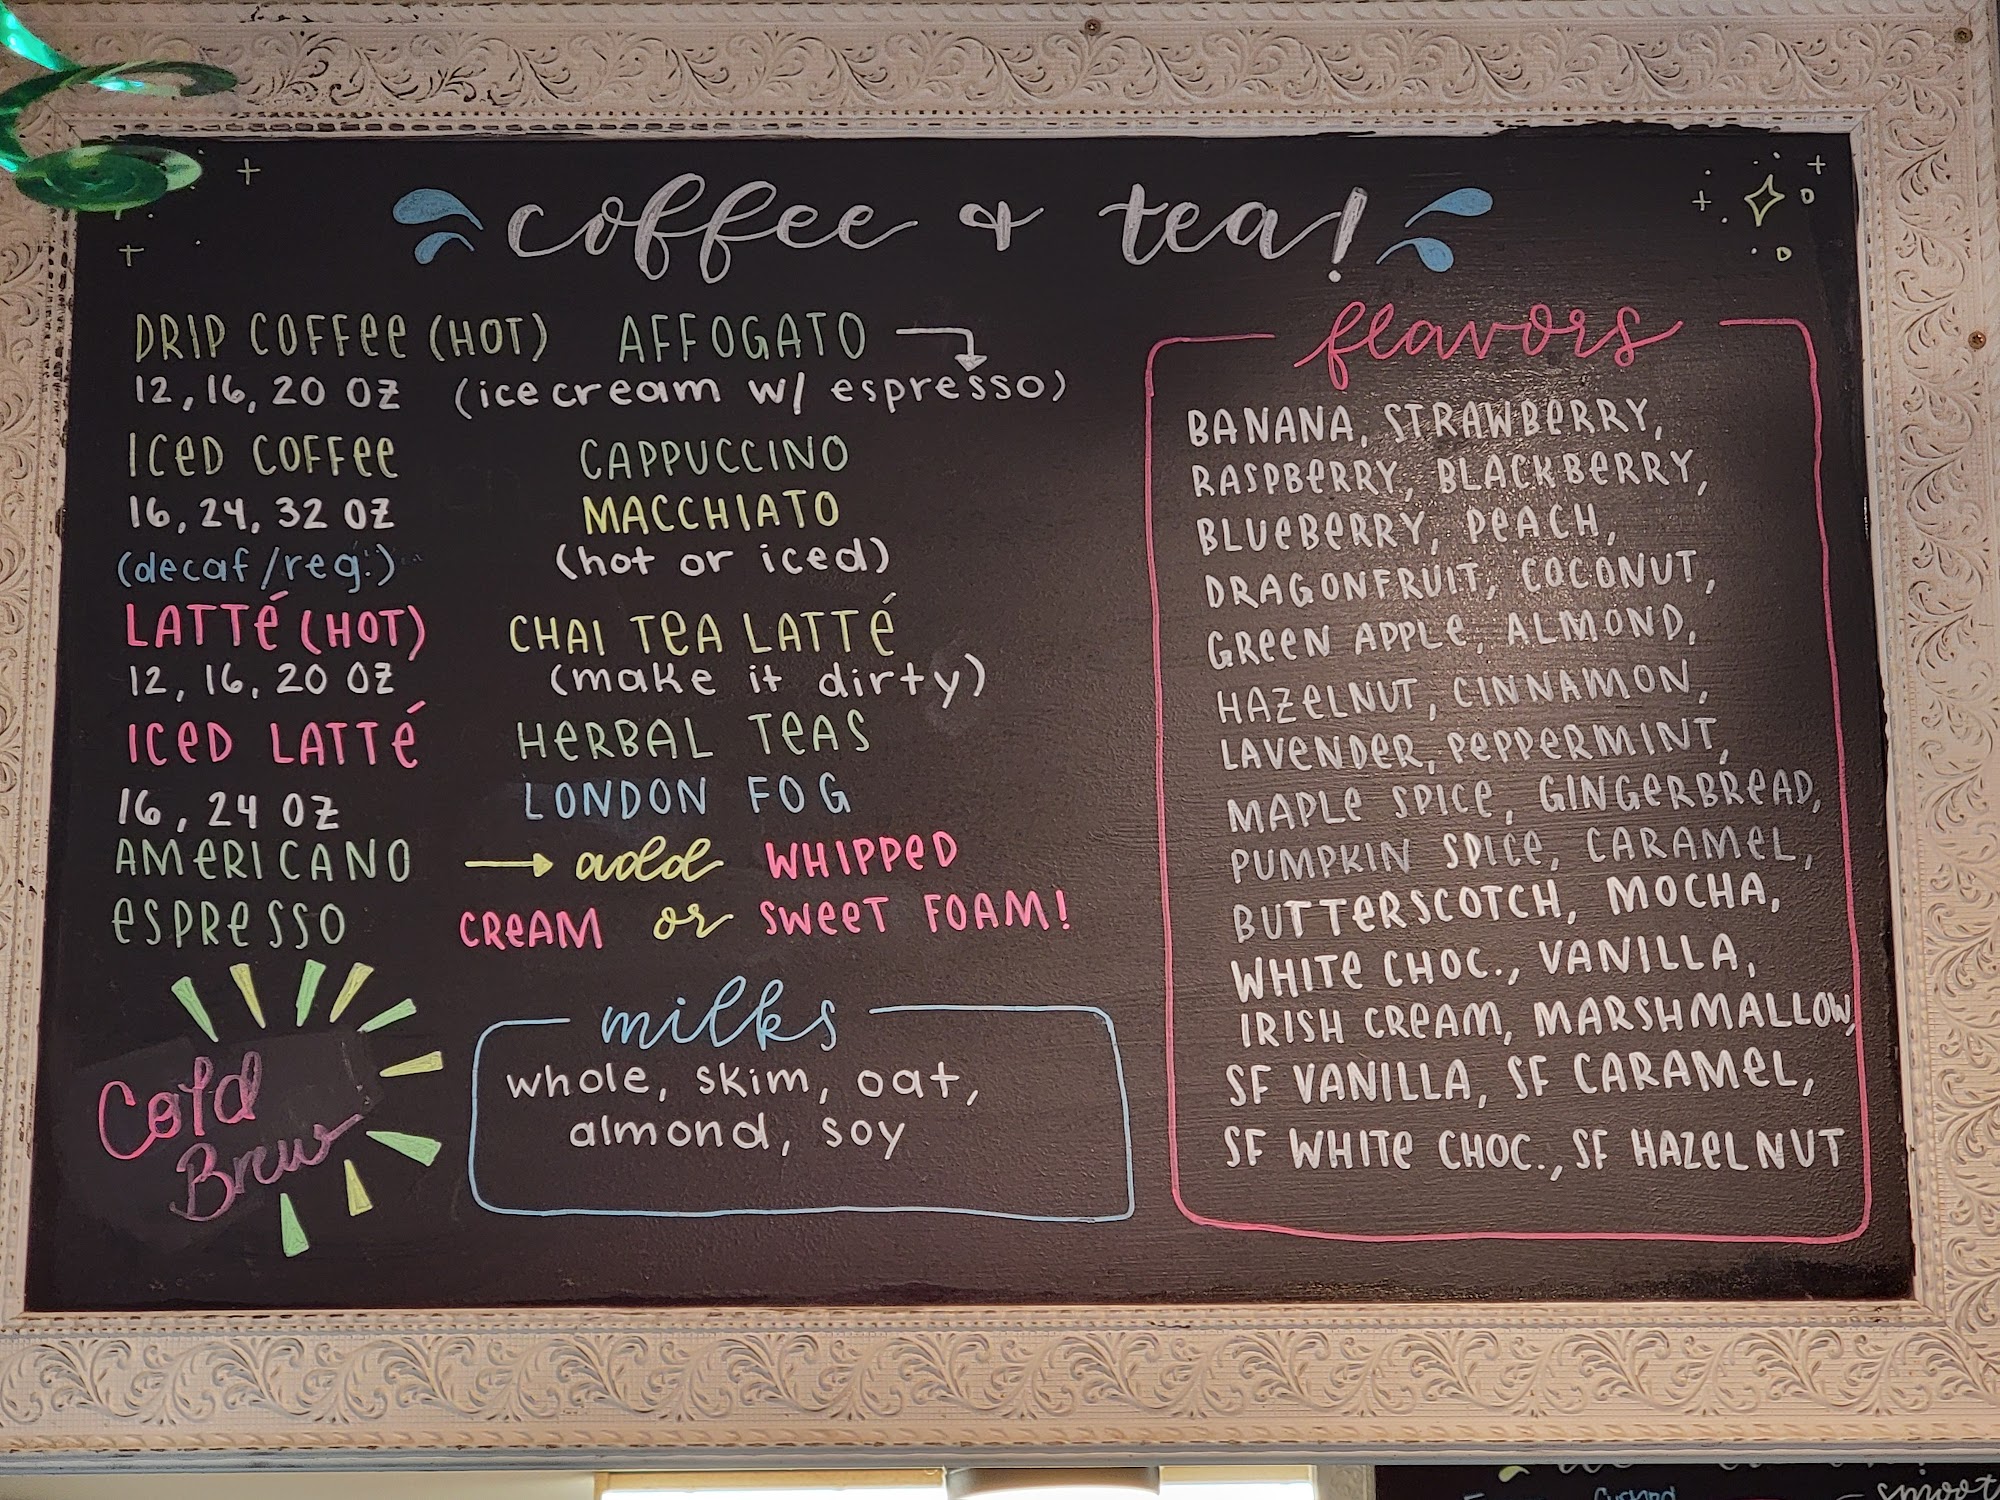 coffee & tea!
DRIP COFFEE (HOT)
12, 16, 20 OZ
ICED COFFEE
16, 24, 32 OZ
(decaf/reg.)
LATTÉ (HOT)
12, 16, 20 OZ
ICED LATTÉ
16, 24 OZ
AMERICANO
ESPRESSO
Cold
Brew
AFFOGATO
(ice cream w/ espresso)
CAPPUCCINO
MACCHIATO
(hot or iced)
CHAI TEA LATTÉ
(make it dirty)
HERBAL TEAS
LONDON FOG
add WHIPPED
CREAM or SWEET FOAM!
milks
whole, skim, oat,
almond, soy
flavors
BANANA, STRAWBERRY,
RASPBERRY, BLACKBERRY,
BLUEBERRY, PEACH,
DRAGONFRUIT, COCONUT,
GREEN APPLE, ALMOND,
HAZELNUT, CINNAMON,
LAVENDER, PEPPERMINT,
MAPLE SPICE, GINGERBREAD,
PUMPKIN SPICE, CARAMEL,
BUTTERSCOTCH, MOCHA,
WHITE CHOC., VANILLA,
IRISH CREAM, MARSHMALLOW,
SF VANILLA, SF CARAMEL,
SF WHITE CHOC., SF HAZELNUT